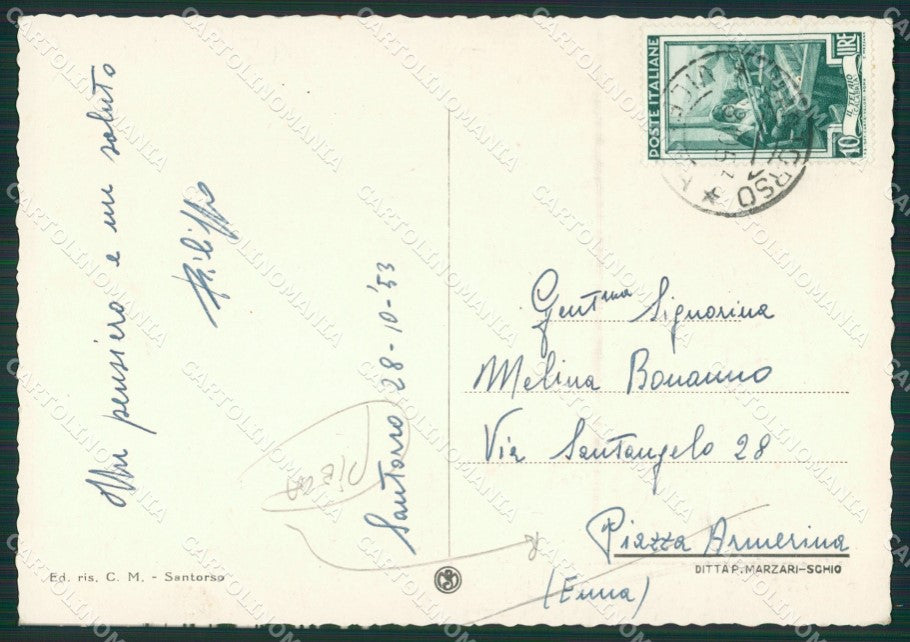 Un pensiero e un saluto
Filippo
Santorso 28-10-'53
Ed. ris. C. M. - Santorso
POSTE ITALIANE
LIRE
10
IL TELAIO
Gent.ma Signorina
Melina Bonanno
Via Santangelo 28
Piazza Armerina
(Enna)
DITTA P. MARZARI-SCHIO
CARTOLINOMANIA